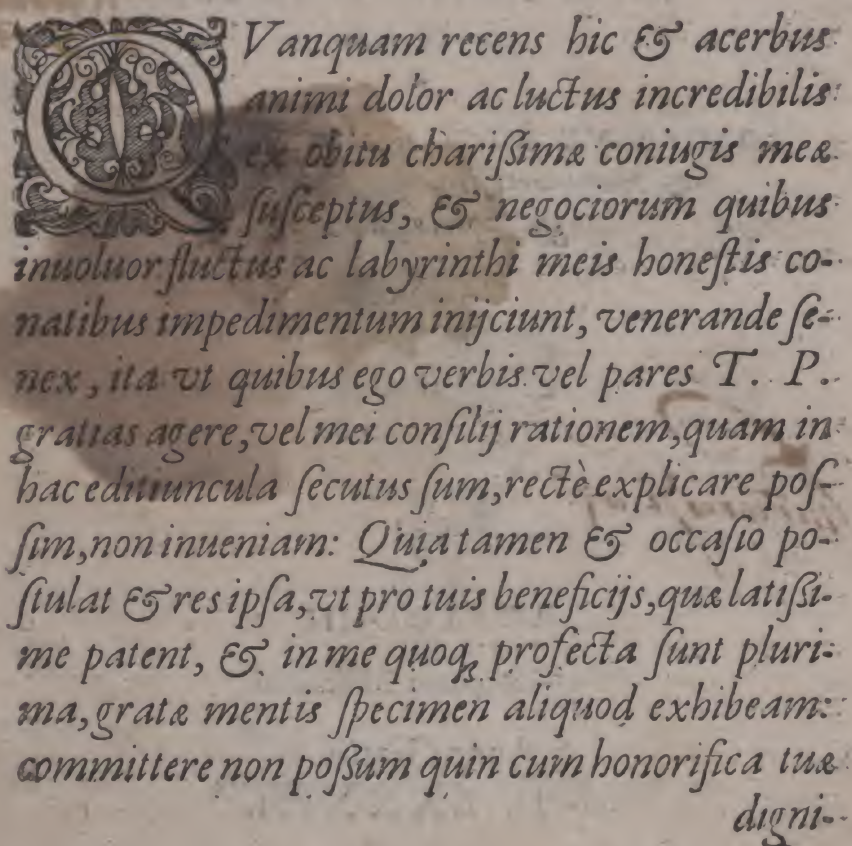 QVanquam recens hic & acerbus
animi dolor ac luctus incredibilis
ex obitu charißimæ coniugis meæ
ſuſceptus, & negociorum quibus
inuoluor fluctus ac labyrinthi meis honeſtis co-
natibus impedimentum inijciunt, venerande ſe-
nex, ita vt quibus ego verbis vel pares T. P.
gratias agere, vel mei conſilij rationem, quam in
hac editiuncula ſecutus ſum, rectè explicare poſ-
ſim, non inueniam: Quia tamen & occaſio po-
ſtulat & res ipſa, vt pro tuis beneficijs, quæ latißi-
me patent, & in me quoq; profecta ſunt pluri-
ma, gratæ mentis ſpecimen aliquod exhibeam:
committere non poßum quin cum honorifica tuæ
digni-